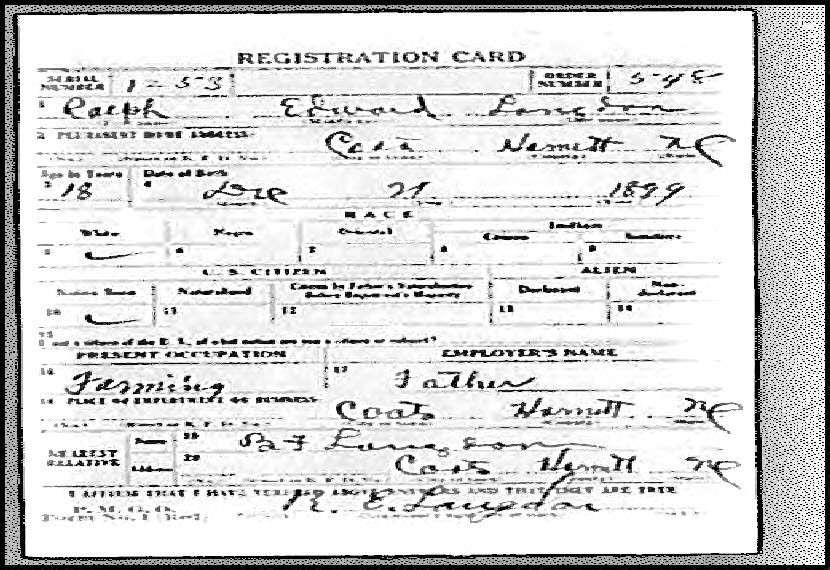 REGISTRATION CARD
SERIAL NUMBER 1253 ORDER NUMBER 548
1 Ralph Edward Langdon
2 PERMANENT HOME ADDRESS: Coats Harnett NC
Age in Years Date of Birth
3 18 4 Dec 21 1899
RACE
White Negro Oriental Indian
Citizen Noncitizen
5 6 7 8 9
U. S. CITIZEN ALIEN
Native Born Naturalized Citizen by Father's Naturalization Before Registrant's Majority Declarant Non-declarant
10 11 12 13 14
15
PRESENT OCCUPATION EMPLOYER'S NAME
16 Farming 17 Father
18 PLACE OF EMPLOYMENT OR BUSINESS: Coats Harnett NC
NEAREST RELATIVE Name 19 Langdon
Address 20 Coats Harnett NC
I AFFIRM THAT I HAVE VERIFIED ABOVE ANSWERS AND THAT THEY ARE TRUE
P. M. G. O.
Form No. 1 (Red) R. E. Langdon